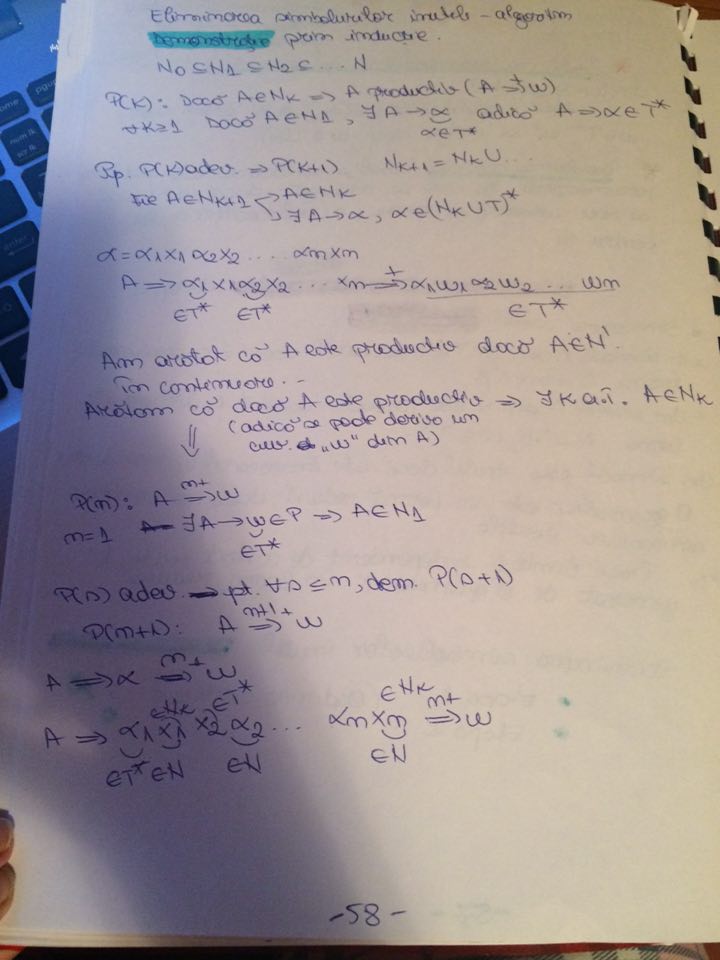 Eliminarea simbolurilor inutile - algoritm
Demonstrație prin inducție.
N0 ⊆ N1 ⊆ N2 ⊆ ... N
P(K): Dacă A∈NK ⟹ A productiv (A ⟹+ w)
∀K≥1 Dacă A∈N1, ∃ A → α adică A ⟹ α∈T*
α∈T*
Pp. P(K) adev. ⟹ P(K+1) NK+1 = NK ∪ ...
Fie A∈NK+1 A∈NK
∃ A → α, α∈(NK∪T)*
α = α1x1 α2x2 .... αmxm
A ⟹ α1x1α2x2 ... xm ⟹+ α1w1α2w2 ... wm
∈T* ∈T* ∈T*
Am arătat că A este productiv dacă A∈N'.
În continuare..
Arătăm că dacă A este productiv ⟹ ∃K a.î. A∈NK
(adică se poate deriva un
cuv. „w" din A)
⇓
P(m): A ⟹m+ w
m=1 ∃ A → w∈P ⟹ A∈N1
∈T*
P(s) adev. pt. ∀s≤m, dem. P(s+1)
P(m+1): A ⟹m+1+ w
A ⟹ α ⟹m+ w
∈NK ∈T* ∈NK
A ⟹ α1x1 x2α2 ... αmxm ⟹m+ w
∈T* ∈N ∈N ∈N
-58-